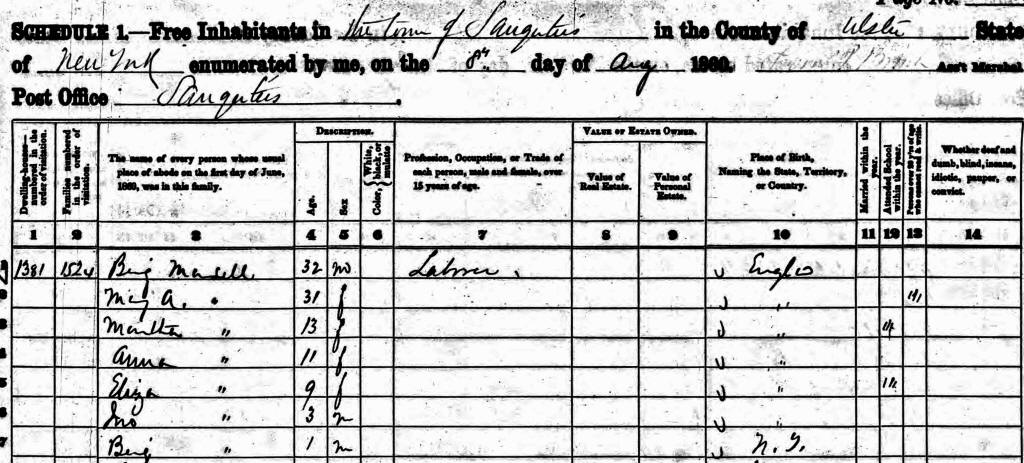 Page No.
SCHEDULE 1.—Free Inhabitants in the town of Saugerties in the County of Ulster State
of New York enumerated by me, on the 8th day of Aug 1860. Ass't Marshal
Post Office Saugerties.
Dwelling-houses—numbered in the order of visitation.
Families numbered in the order of visitation.
The name of every person whose usual place of abode on the first day of June, 1860, was in this family.
DESCRIPTION.
Age.
Sex
Color, White, black, or mulatto
Profession, Occupation, or Trade of each person, male and female, over 15 years of age.
VALUE OF ESTATE OWNED.
Value of Real Estate.
Value of Personal Estate.
Place of Birth, Naming the State, Territory, or Country.
Married within the year.
Attended School within the year.
Persons over 20 y'rs of age who cannot read & write.
Whether deaf and dumb, blind, insane, idiotic, pauper, or convict.
1 2 3 4 5 6 7 8 9 10 11 12 13 14
1381 1524 Benj 32 m Laborer England
Mary A. " 31 f " /
Martha " 13 f " /
Anna " 11 f "
Eliza " 9 f " /
Jno " 3 m "
Benj " 1 m N.Y.